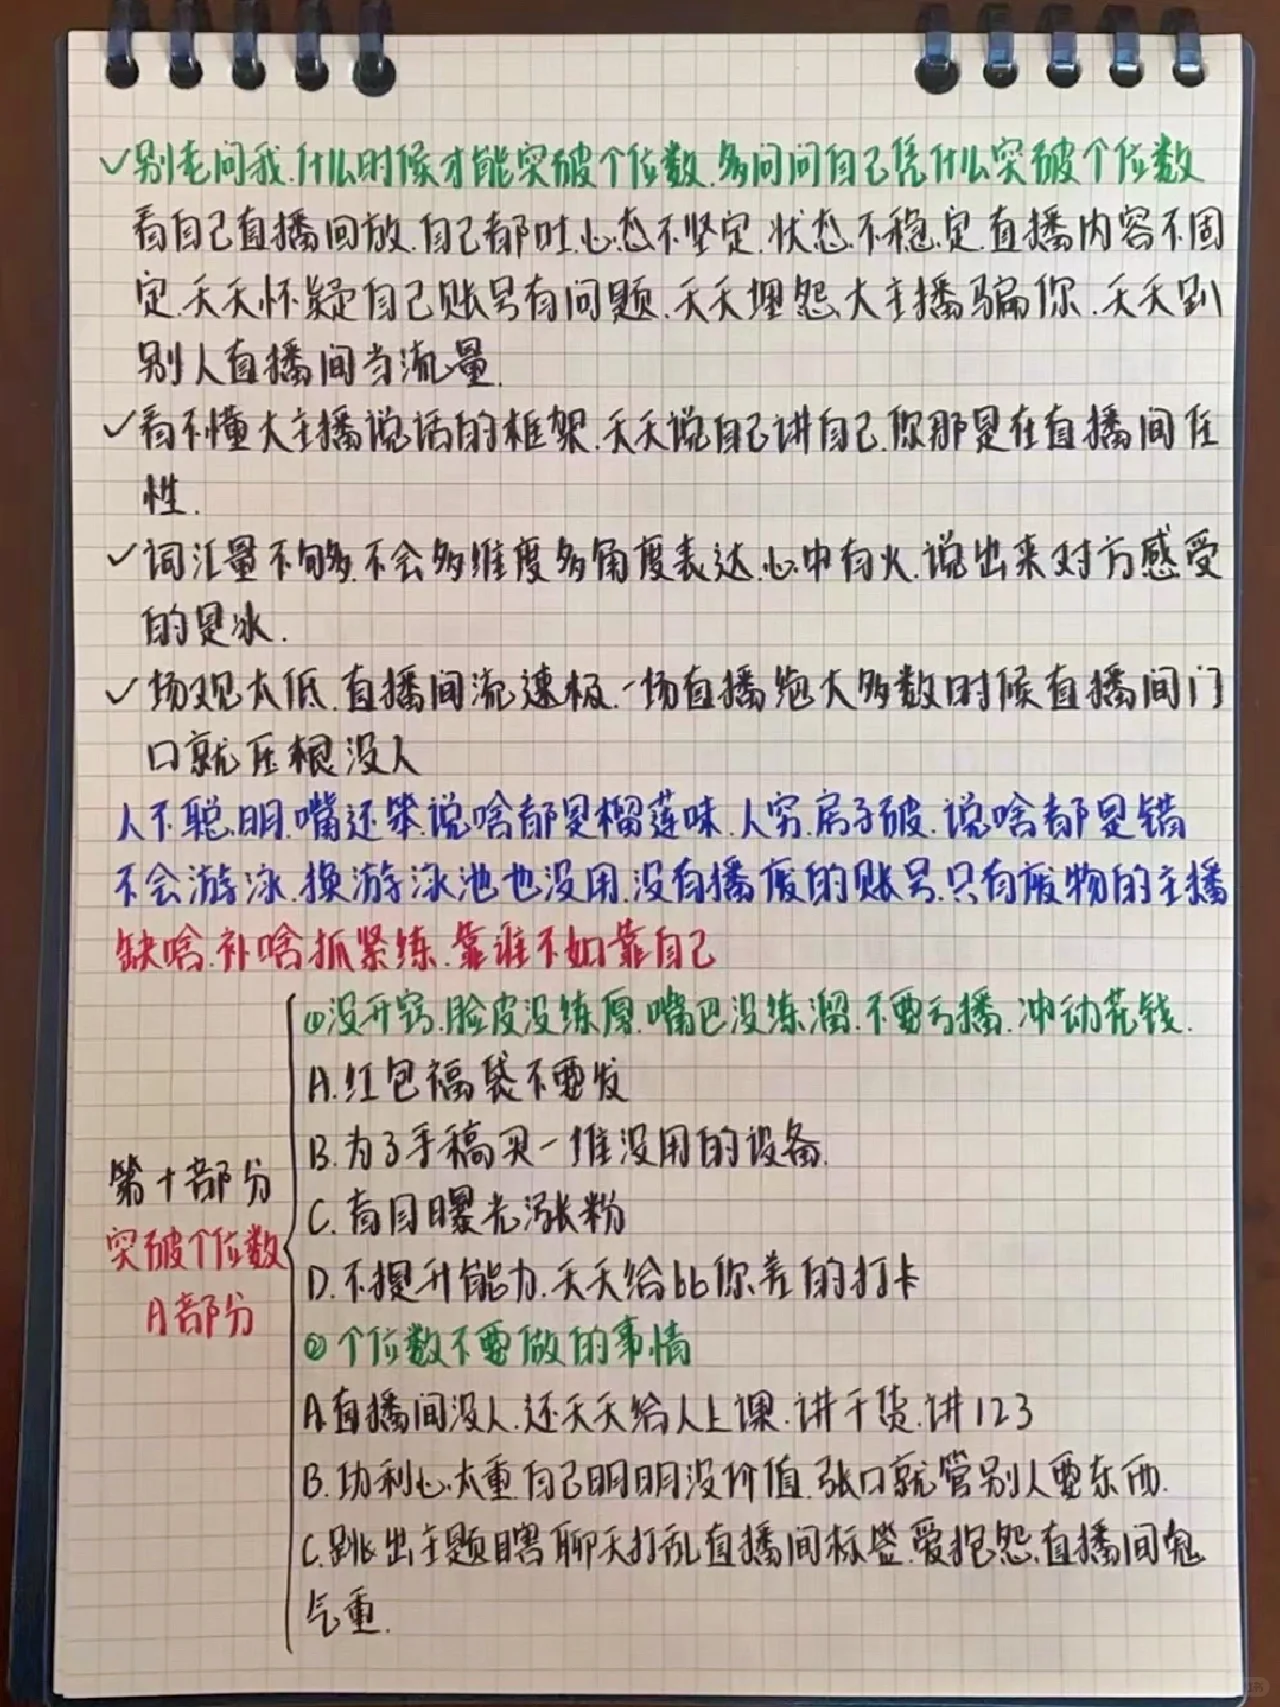 ✓别老问我.什么时候才能突破个位数.多问问自己凭什么突破个位数
看自己直播回放.自己都吐.心态不坚定.状态不稳定.直播内容不固
定.天天怀疑自己账号有问题.天天埋怨大主播骗你.天天趴
别人直播间当流量.
✓看不懂大主播说话的框架.天天说自己讲自己.你那是在直播间任
性.
✓词汇量不够多.不会多维度多角度表达.心中有火.说出来对方感受
的是冰.
✓场观太低.直播间流速极.一场直播绝大多数时候直播间门
口就压根没人
人不聪明.嘴还笨.说啥都是榴莲味.人穷.房子破.说啥都是错
不会游泳.换游泳池也没用.没有播废的账号.只有废物的主播
缺啥.补啥.抓紧练.靠谁不如靠自己
①没开窍.脸皮没练厚.嘴巴没练溜.不要亏播.冲动花钱.
A.红包福袋不要发
B.为了手稿买一堆没用的设备.
C.盲目曝光涨粉
D.不提升能力.天天给bb你差的打卡
第十部分
突破个位数
A部分
②个位数不要做的事情
A.直播间没人.还天天给人上课.讲干货.讲123
B.功利心太重.自己明明没价值.张口就管别人要东西.
C.跳出主题瞎聊天打乱直播间标签.爱抱怨.直播间鬼
气重.